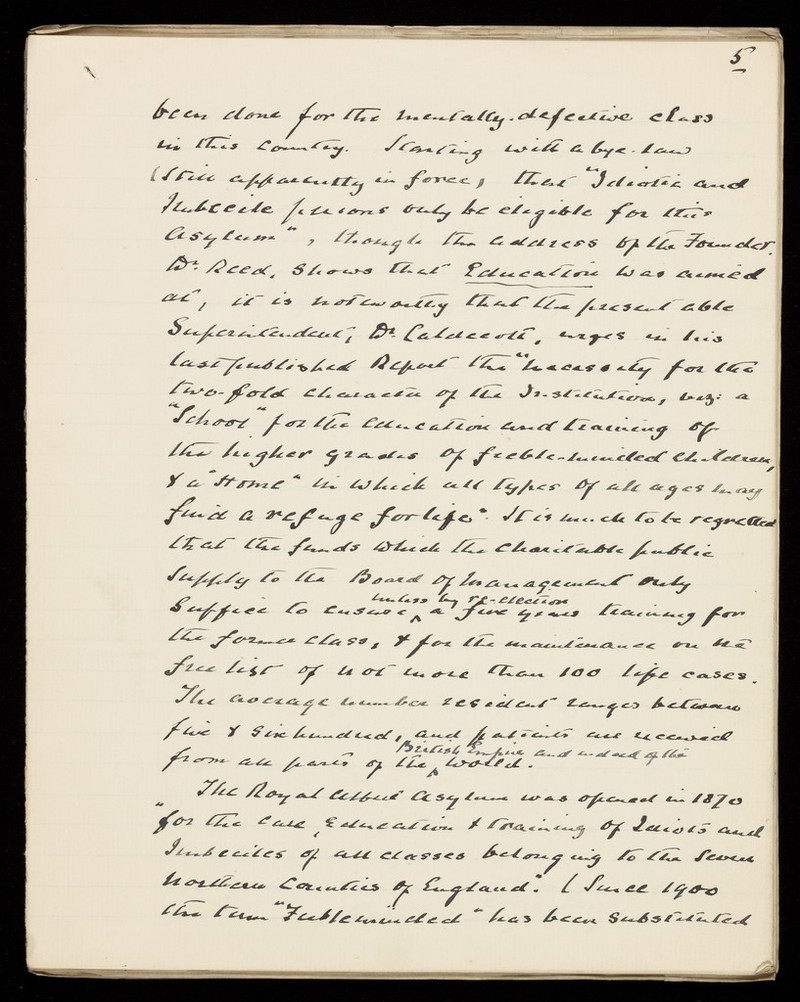 5
been done for the mentally-defective class
in this country. Starting with a bye-law
(still apparently in force) that "Idiotic and
Imbecile persons only be eligible for this
Asylum", though the address of the Founder,
Dr. Reed, shows that Education was aimed
at, it is noteworthy that the present able
Superintendent, Dr Caldecott, urges in his
last published Report the "necessity for the
two-fold character of the Institution, viz: a
"School" for the education and training of
the higher grades of feeble-minded children,
& a "Home" in which all types of all ages may
find a refuge for life". It is much to be regretted
that the funds which the charitable public
supply to the Board of Management only
unless by re-election
suffice to ensure a five years training for
the former class, & for the maintenance on the
free list of not more than 100 life cases.
The average number resident ranges between
five & six hundred, and patients are received
British Empire and indeed of the
from all parts of the world.
The Royal Albert Asylum was opened in 1870
"for the Care, Education & training of Idiots and
Imbeciles of all classes belonging to the Seven
Northern Counties of England". (Since 1900
the term "Feebleminded" has been substituted